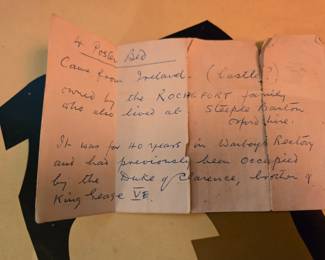 4 Poster Bed
Came from Ireland - (Castle?)
owned by the ROCHFORT family
who also lived at Steeple Barton
Oxfordshire.
It was for 40 years in Warboys Rectory
and had previously been occupied
by the Duke of Clarence, brother of
King George VE.